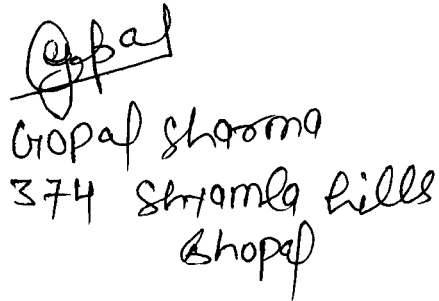 Gopal
Gopal Sharma
374 Shyamla hills
Bhopal